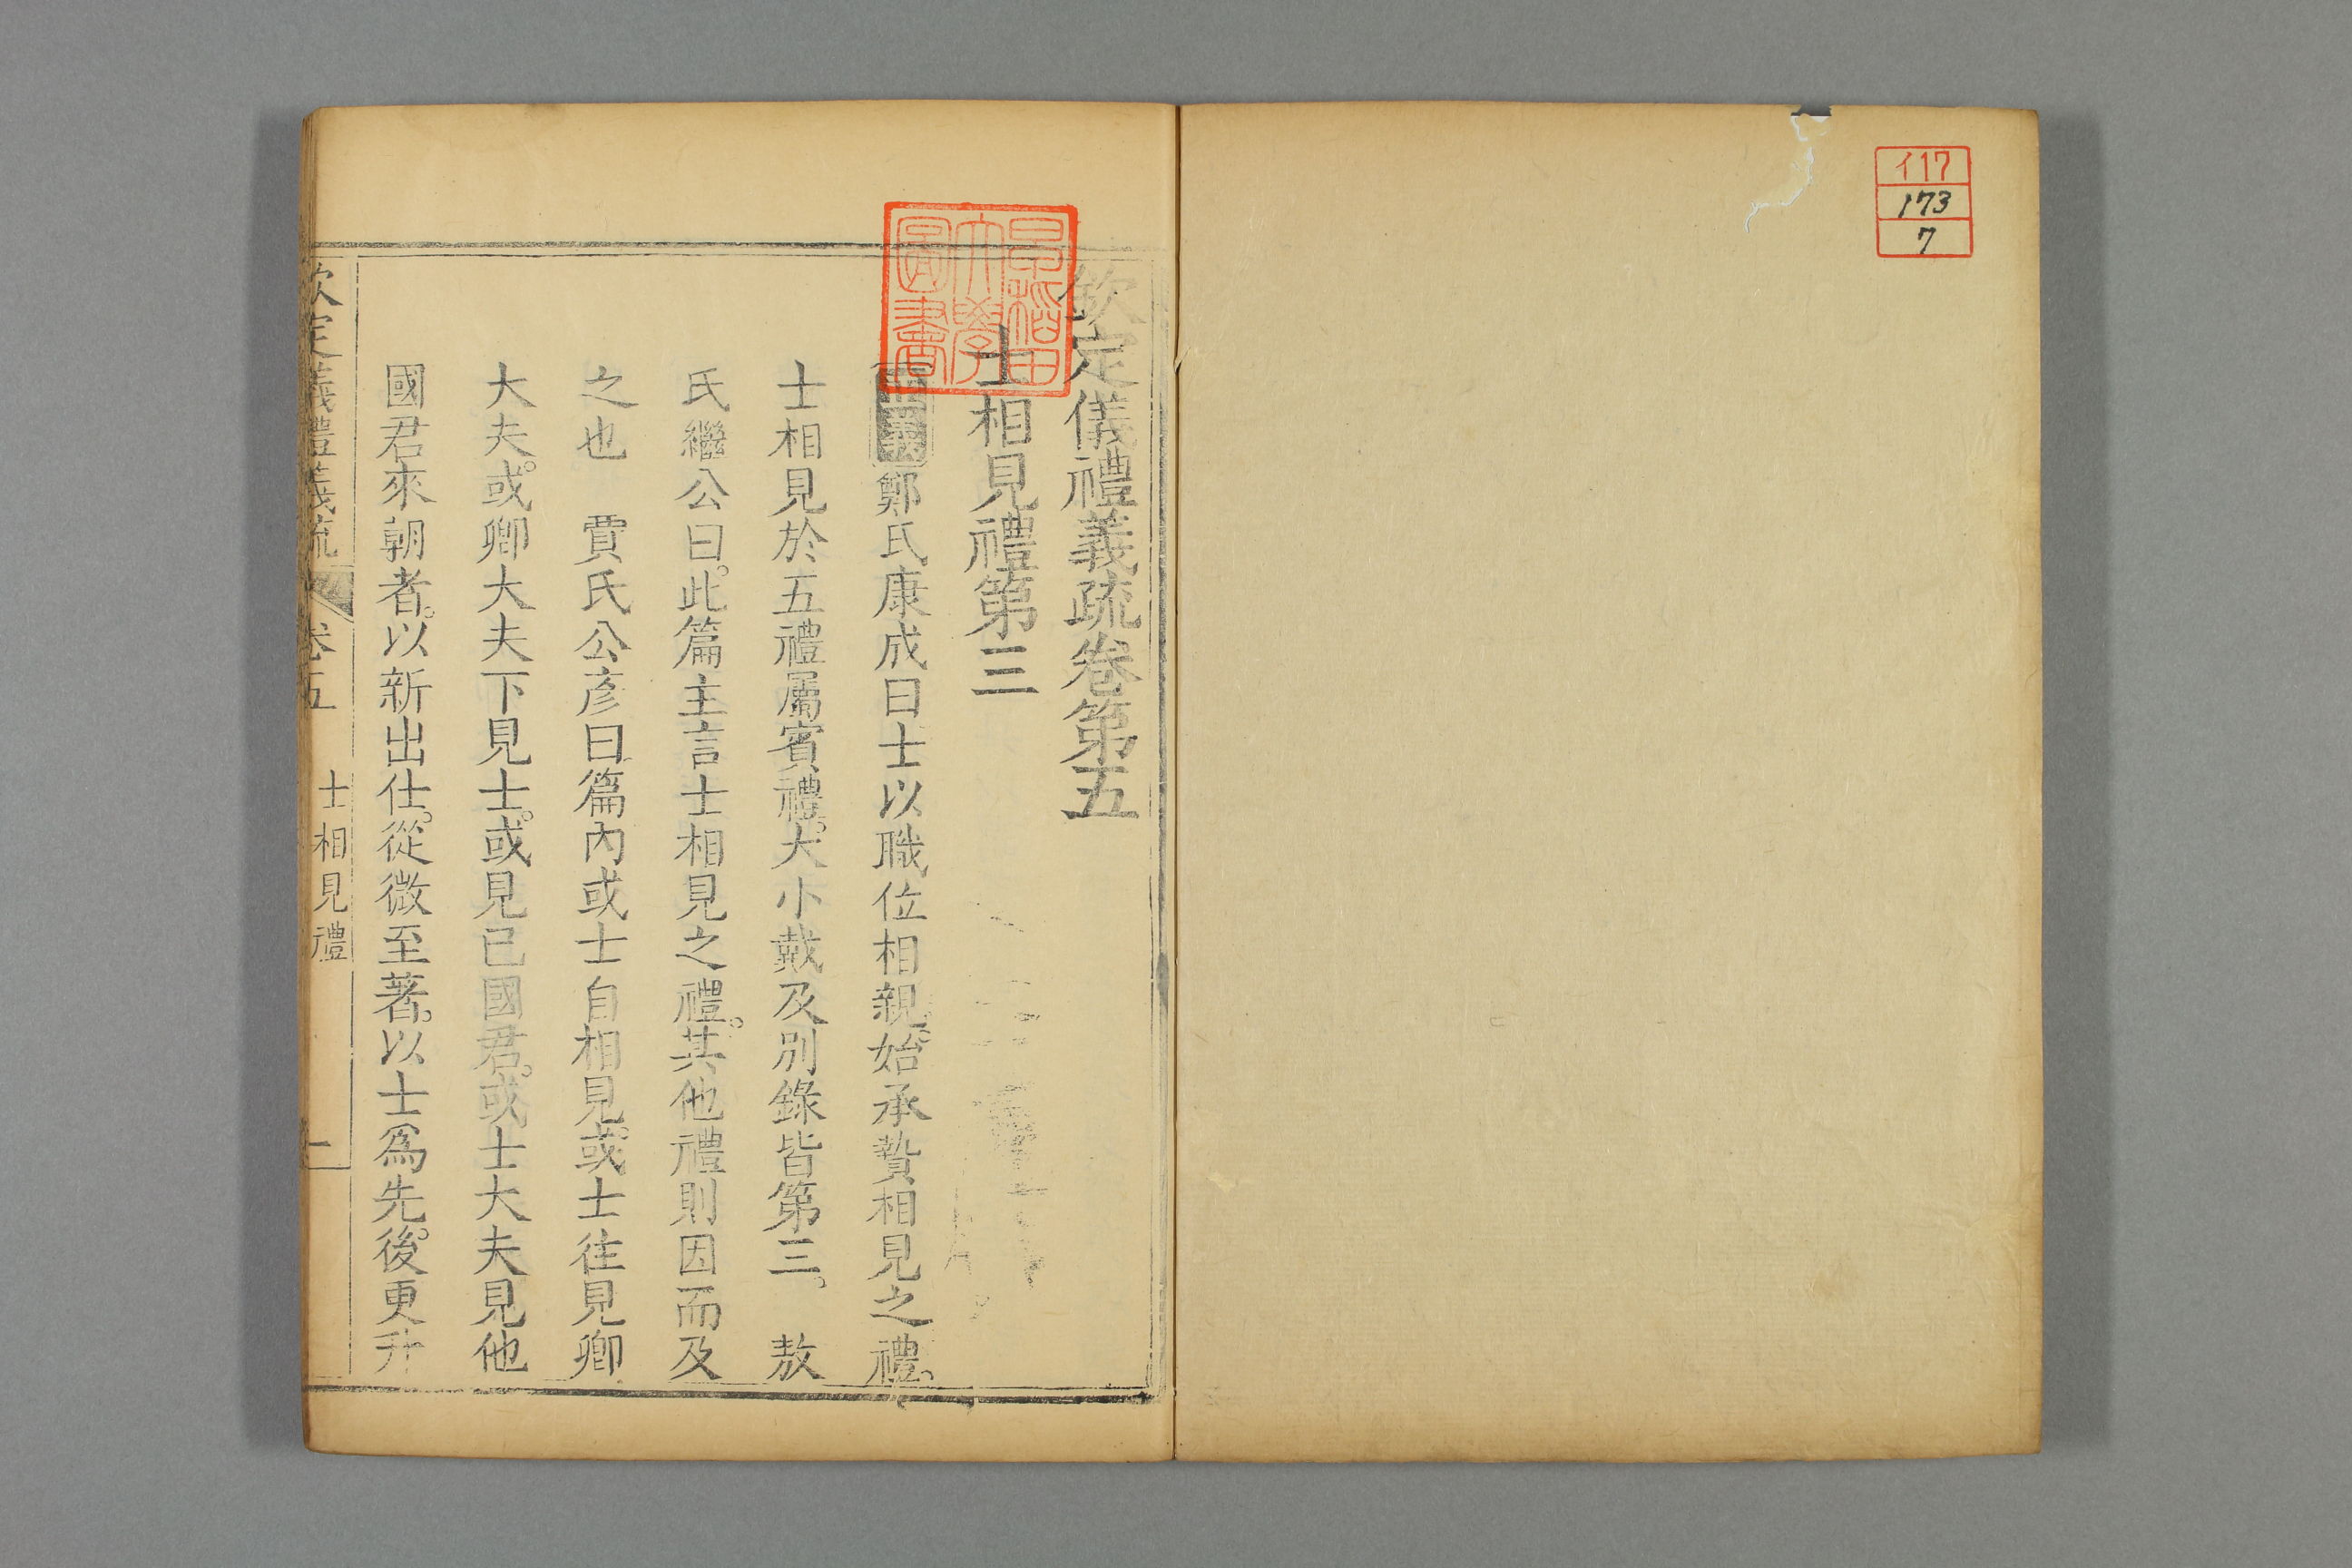 イ17
173
7
欽定儀禮義疏卷第五
士相見禮第三
正義鄭氏康成曰士以職位相親始承贄相見之禮。
士相見於五禮屬賓禮。大小戴及別錄皆第三。 敖
氏繼公曰。此篇主言士相見之禮。其他禮則因而及
之也 賈氏公彥曰篇內或士自相見。或士往見卿
大夫。或卿大夫下見士。或見已國君。或士大夫見他
國君來朝者。以新出仕。從微至著。以士為先。後更升
欽定義禮義疏 卷五 士相見禮 一
早稻田大學圖書